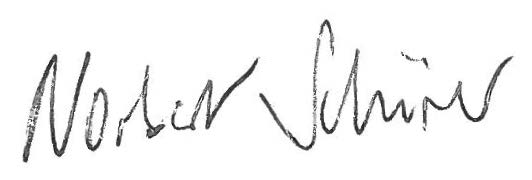 Norbert Schürer